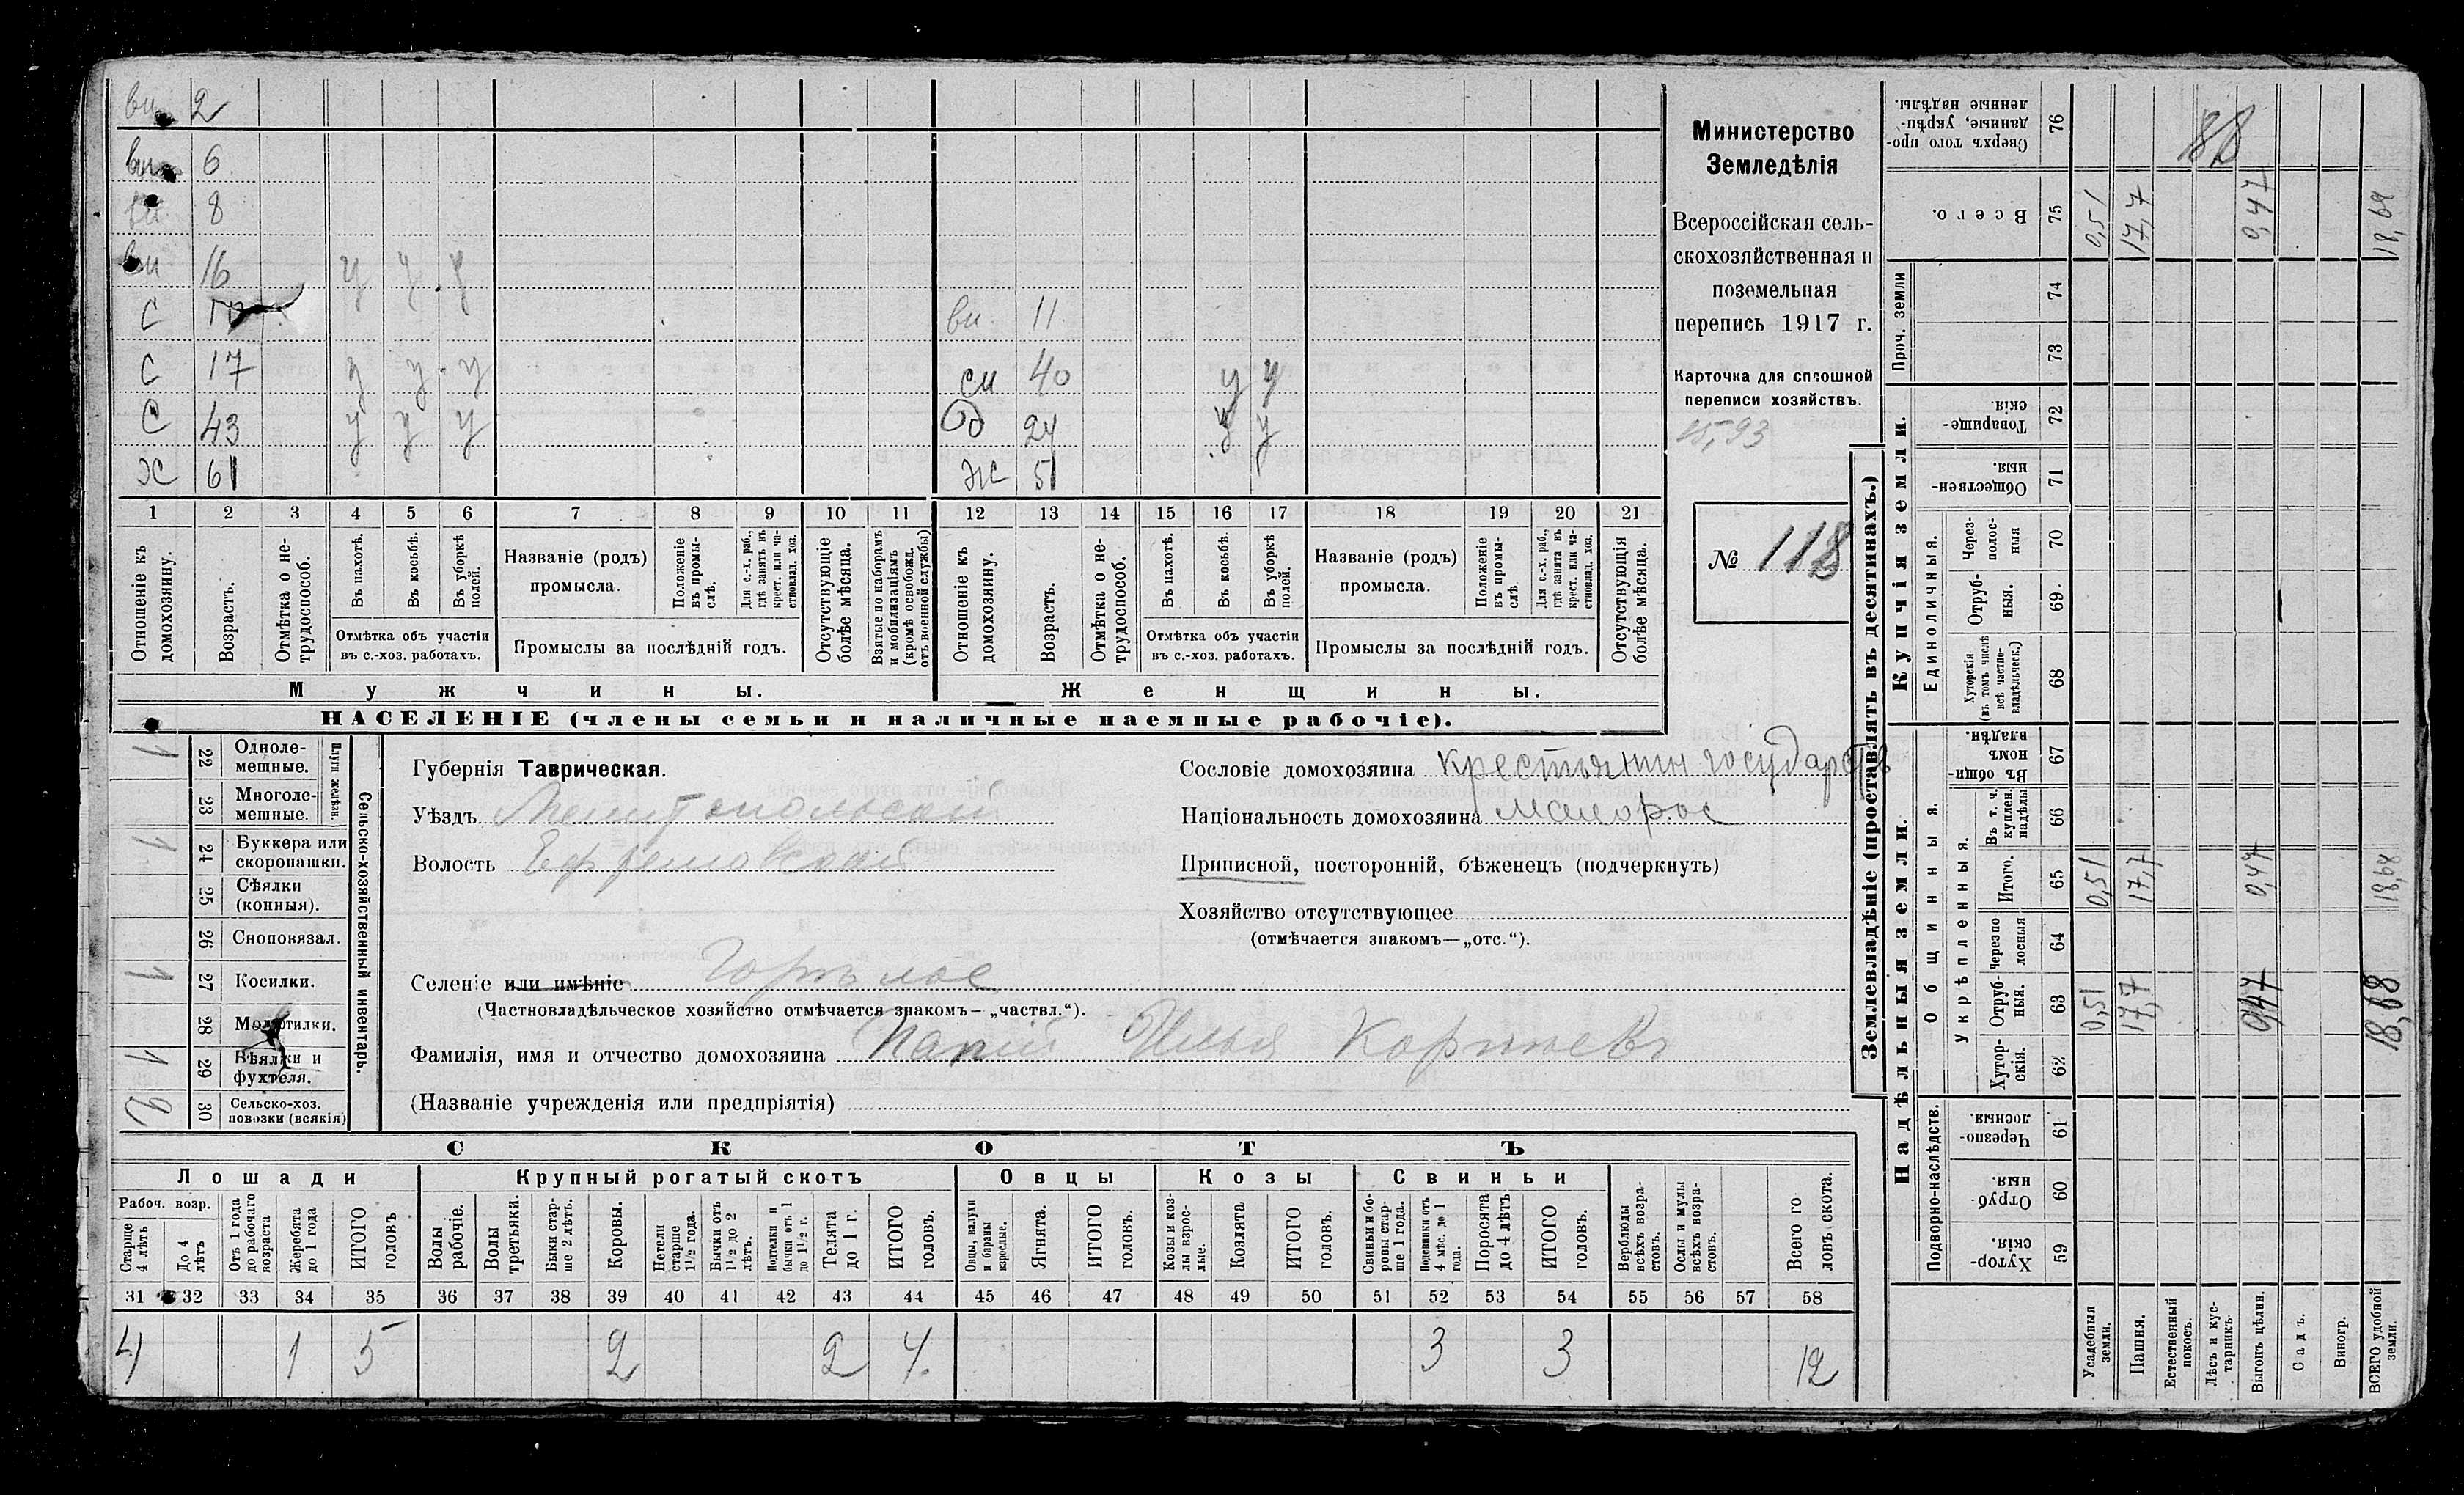 вн. 2
вн 6
вн 8
вн 16 у у у
С
вн. 11
С 17 у у у
сн 40 у у
С 43 у у у
Од 24 у у
Ж 61
Ж 51
1 2 3 4 5 6 7 8 9 10 11 12 13 14 15 16 17 18 19 20 21
Отношеніе къ домохозяину.
Возрастъ.
Отмѣтка о не-трудоспособ.
Въ пахотѣ.
Въ косьбѣ.
Въ уборкѣ полей.
Отмѣтка объ участіи въ с.-хоз. работахъ.
Названіе (родъ) промысла.
Положеніе въ промы-слѣ.
Для с.-х. раб., гдѣ занятъ въ крест. или ча-стновлад. хоз.
Промыслы за послѣдній годъ.
Отсутствующіе болѣе мѣсяца.
Взятые по наборамъ и мобилизаціямъ (кромѣ освобожд. отъ военной службы)
Отношеніе къ домохозяину.
Возрастъ.
Отмѣтка о не-трудоспособ.
Въ пахотѣ.
Въ косьбѣ.
Въ уборкѣ полей.
Отмѣтка объ участіи въ с.-хоз. работахъ.
Названіе (родъ) промысла.
Положеніе въ промы-слѣ
Для с.-х. раб., гдѣ занята въ крест. или ча-стновлад. хоз.
Промыслы за послѣдній годъ.
Отсутствующія болѣе мѣсяца.
Мужчины.
Женщины.
НАСЕЛЕНІЕ (члены семьи и наличные наемные рабочіе).
Министерство
Земледѣлія
Всероссійская сель-
скохозяйственная и
поземельная
перепись 1917 г.
Карточка для сплошной
переписи хозяйствъ.
15,93
№ 118
Сельско-хозяйственный инвентарь.
Плуги желѣзн.
1 22 Одноле-мешные.
23 Многоле-мешные.
1 24 Буккера или скоропашки.
25 Сѣялки (конныя).
26 Сноповязал.
1 27 Косилки.
28 Молотилки.
1 29 Вѣялки и фухтеля.
2 30 Сельско-хоз. повозки (всякія)
Губернія Таврическая.
Уѣздъ Мелитопольскій
Волость Ефремовская
Селеніе или имѣніе Горѣлое
(Частновладѣльческое хозяйство отмѣчается знакомъ— „частвл.“).
Фамилія, имя и отчество домохозяина Папій Илья Корнѣевъ
(Названіе учрежденія или предпріятія)
Сословіе домохозяина крестьянин государств
Національность домохозяина малорос
Приписной, посторонній, бѣженецъ (подчеркнуть)
Хозяйство отсутствующее
(отмѣчается знакомъ—„отс.“).
СКОТЪ
Лошади
Крупный рогатый скотъ
Овцы
Козы
Свиньи
Рабоч. возр.
Старше 4 лѣтъ
До 4 лѣтъ
Отъ 1 года до рабочаго возраста
Жеребята до 1 года
ИТОГО головъ
Волы рабочіе.
Волы третьяки.
Быки стар-ше 2 лѣтъ.
Коровы.
Нетели старше 1½ года.
Бычки отъ 1½ до 2 лѣтъ.
Подтелки и бычки отъ 1 до 1½ г.
Телята до 1 г.
ИТОГО головъ.
Овцы, валухи и бараны взрослые.
Ягнята.
ИТОГО головъ.
Козы и коз-лы взрос-лые.
Козлята
ИТОГО головъ.
Свиньи и бо-ровы стар-ше 1 года.
Подсвинки отъ 4 мѣс. до 1 года.
Поросята до 4 лѣтъ
ИТОГО головъ.
Верблюды всѣхъ возра-стовъ.
Ослы и мулы всѣхъ возра-стовъ.
Всего го ловъ скота.
31 32 33 34 35 36 37 38 39 40 41 42 43 44 45 46 47 48 49 50 51 52 53 54 55 56 57 58
4 1 5 2 2 4. 3 3 12
Землевладѣніе (проставлять въ десятинахъ.)
Надѣльныя земли.
Купчія земли.
Проч. земли
Подворно-наслѣдств.
Общинныя.
Укрѣпленныя.
Единоличныя.
Сверхъ того про-данные, укрѣп-ленные надѣлы. 76 88
Всего. 75 0,51 17,7 0,47 18,68
74
73
Товарище-скія. 72
Обществен-ныя. 71
Через-полос-ныя 70
Отруб-ныя. 69.
Хуторскія (въ томъ числѣ всѣ частно-владѣльческ.) 68
Въ общи-номъ владѣн. 67
Въ т. ч. куплен. надѣлы 66
Итого. 65 0,51 17,7 0,47 18,68
Черезпо лосныя 64
Отруб-ныя. 63 0,51 17,7 0,47 18,68
Хутор-скія. 62
Черезпо-лосныя. 61
Отруб-ныя. 60
Хутор-скія. 59
Усадебныя земли.
Пашня.
Естественный покосъ.
Лѣсъ и кус-тарникъ.
Выгонъ цѣлин.
Садъ.
Виногр.
ВСЕГО удобной земли.